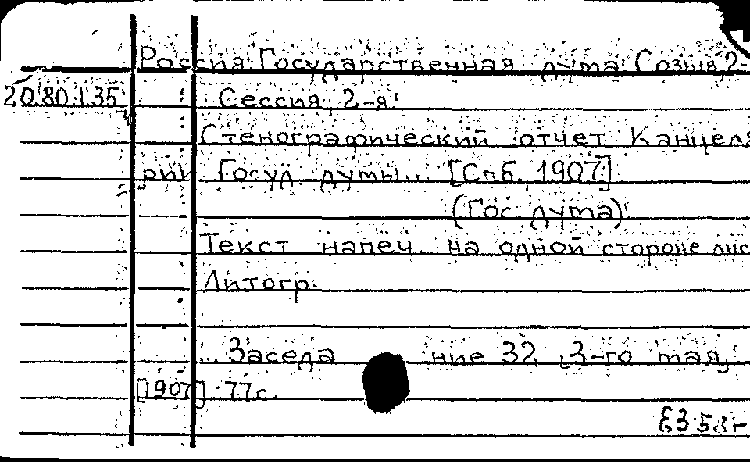 Россия. Государственная дума. Созыв, 2-
20.80.1.35 Сессия, 2-я.
Стенографический отчет Канцеля
рии Госуд. думы.. [Спб. 1907]
(Гос. дума)
Текст напеч. на одной стороне лис
Литогр.
Заседание 32, 3-го мая,
[1907] 77с.